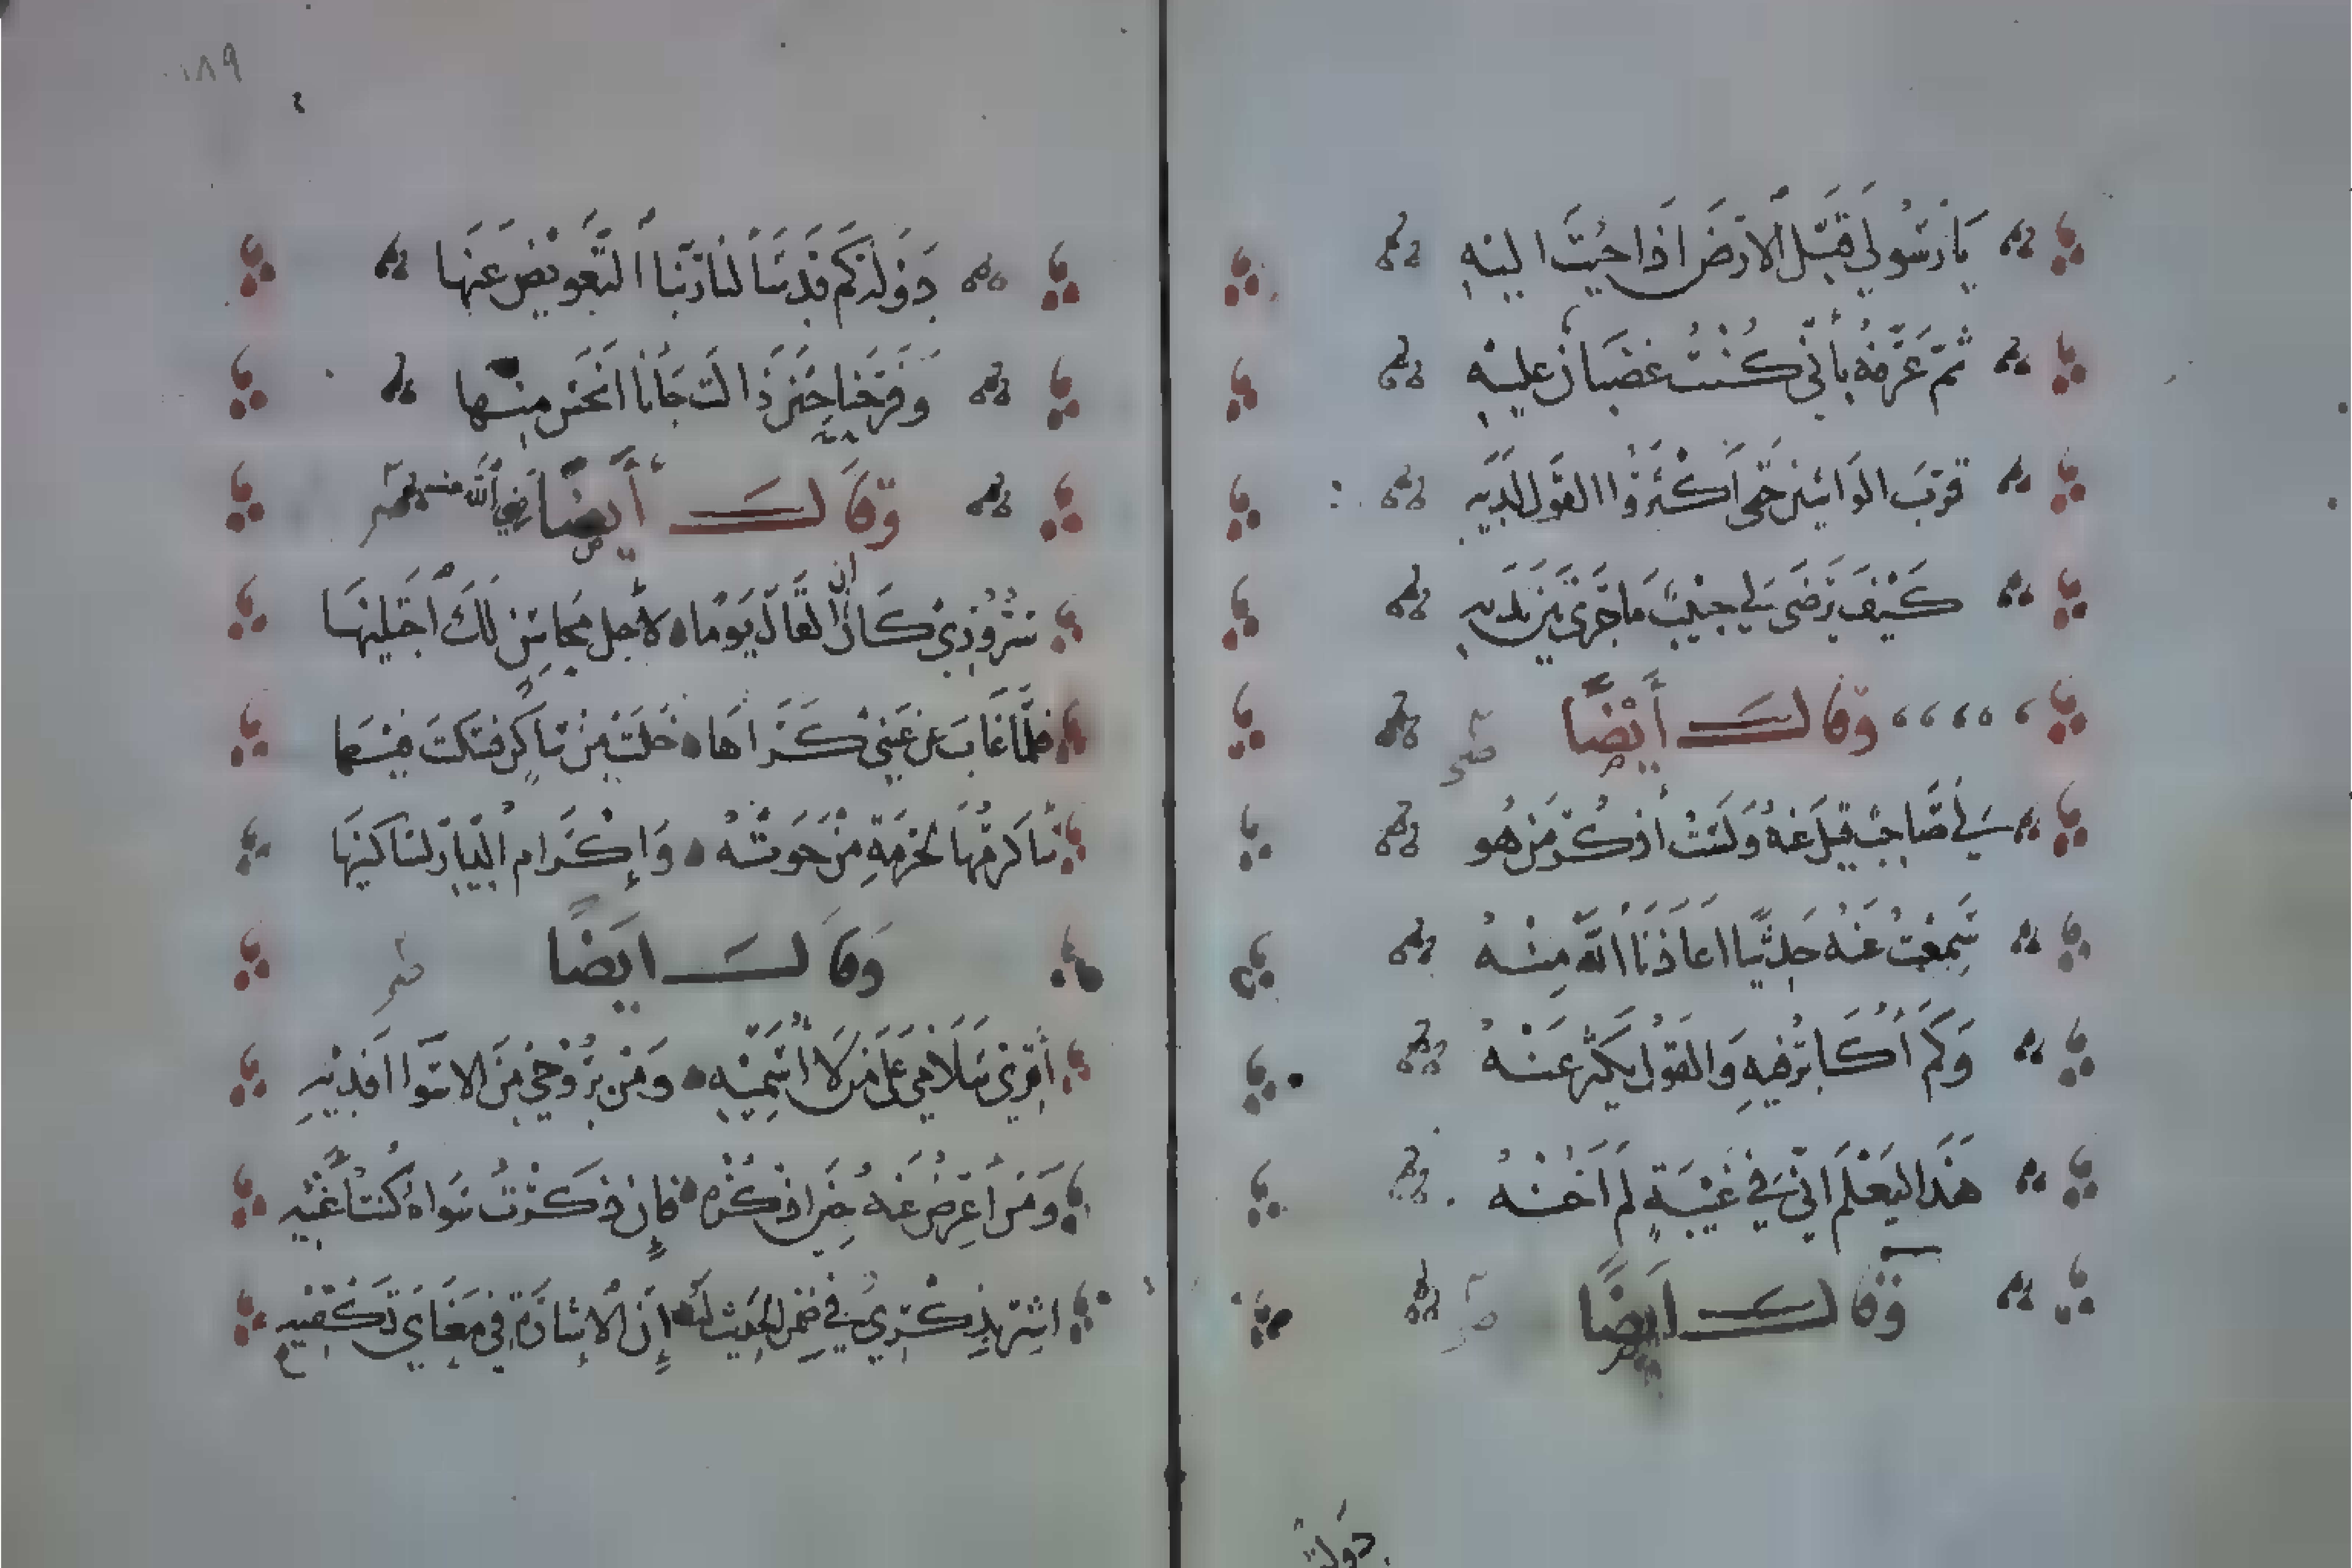 يَا رَسُولِي قَبِّلِ الأَرْضَ اذَا جِئْتَ اليْهِ
ثُمَّ عَرِّفْهُ بِأَنِّي كُنْتُ غضْبَان عليْهِ
قرّبَ الوَاشِين حَتّى أَكْثَرُوا القَوْل لَدَيْهِ
كَيْفَ يَرْضَى لِي حبيب مَا جَرَى بَيْن يَديهِ
وَقَالَ أَيْضًا
لِي صَاحِبٌ قيلَ عَنهُ وَلَسْتُ أذكُر مَنْ هُو
سَمِعْتُ عَنْهُ حَدِيثًا اعَاذَنَا اللهُ مِنْهُ
وَكَمْ أُكَابِرُ فِيهِ وَالقَوْلُ يَكْثُر عَنْهُ
هَذَا لِيَعْلَمَ انِّي فِي غَيْبَةٍ لَمْ أَخُنْهُ
وَقَالَ أَيضًا
دولت
١٨٩
دَوْلَة كَمْ قَدْ سَأَلْنَا رَبَّنَا التَّعْوِيضَ عَنْهَا
وَفَرِحْنَا حِينَ زَالَتْ جَانَا انْحَسُ مِنْها
وَقَالَ أَيْضًا رضي الله عنه
كَانَ ان لقَاكَ يَوْمًا لأَجْلِ مَحَاسِنٍ لَكَ أَجْتَلِيْهَا
فلمَّا غَابَ عن عَيْني كَرَاهَا خَلَتْ مِنْ سَاكِنٍ فسكنْتَ فِيْها
سَأُكْرِمُهَا لِحُرْمَةِ مَنْ حَوَتْهُ وَإِكْرَام الدِّيَار لسَاكنيْهَا
وَقَالَ ايَضًا
أَقْرِي سَلَامِي عَلَى مَن لَا أُسَمِّيْهِ وَمَنْ بِرُوحِي مِنَ الاسْوَا أَفْدِيْهِ
وَمَن أُعَرِّضُ عَنْهُ حِينَ اذْكُرُه فَإِنْ ذَكَرْتُ سَوَاهُ كُنتُ أَعْنِيْهِ
اشِرْ بِذِكْرِي فِي ضِمْنِ الحَدِيْثِ لَهُ إِنَّ الْإِشَارَةَ فِي مَعْنَايَ تَكْفِيْهِ